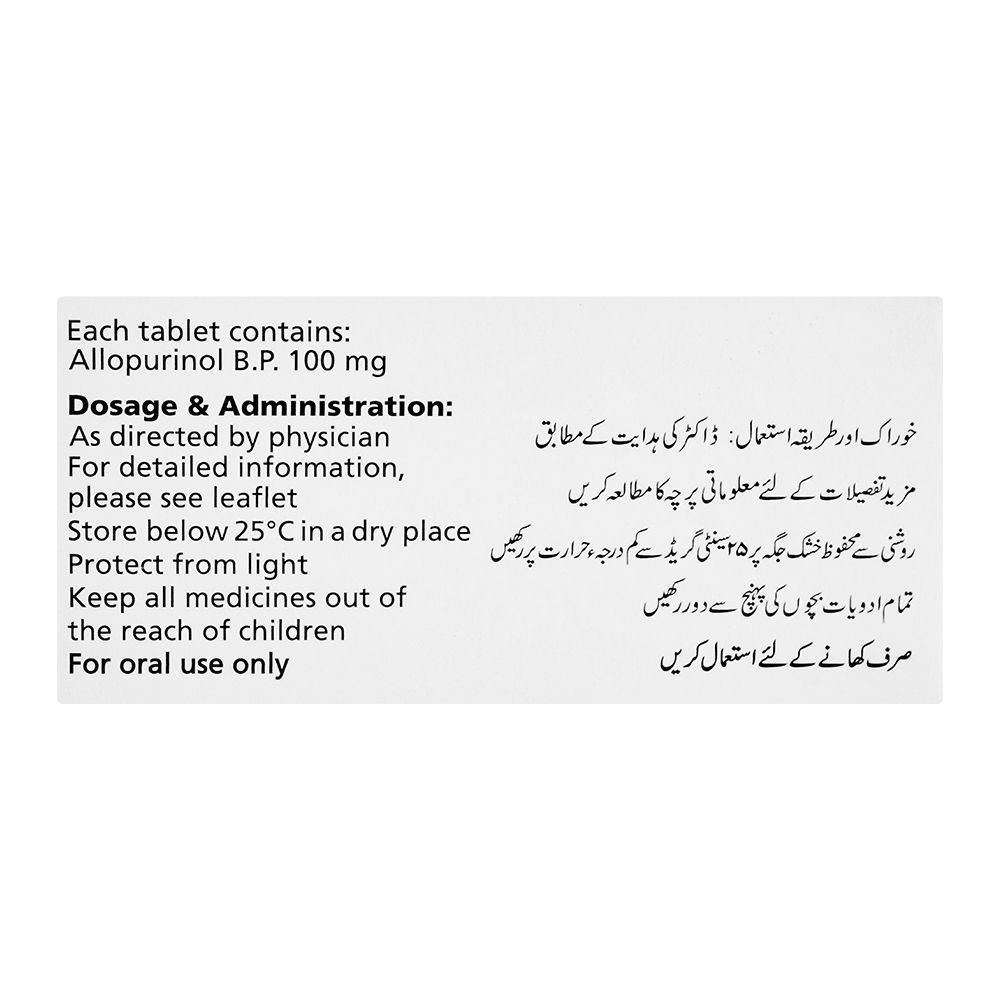 Each tablet contains:
Allopurinol B.P. 100 mg
Dosage & Administration:
As directed by physician
For detailed information,
please see leaflet
Store below 25°C in a dry place
Protect from light
Keep all medicines out of
the reach of children
For oral use only
خوراک اور طریقہ استعمال: ڈاکٹر کی ہدایت کے مطابق
مزید تفصیلات کے لئے معلوماتی پرچہ کا مطالعہ کریں
روشنی سے محفوظ خشک جگہ پر ۲۵ سینٹی گریڈ سے کم درجہء حرارت پر رکھیں
تمام ادویات بچوں کی پہنچ سے دور رکھیں
صرف کھانے کے لئے استعمال کریں